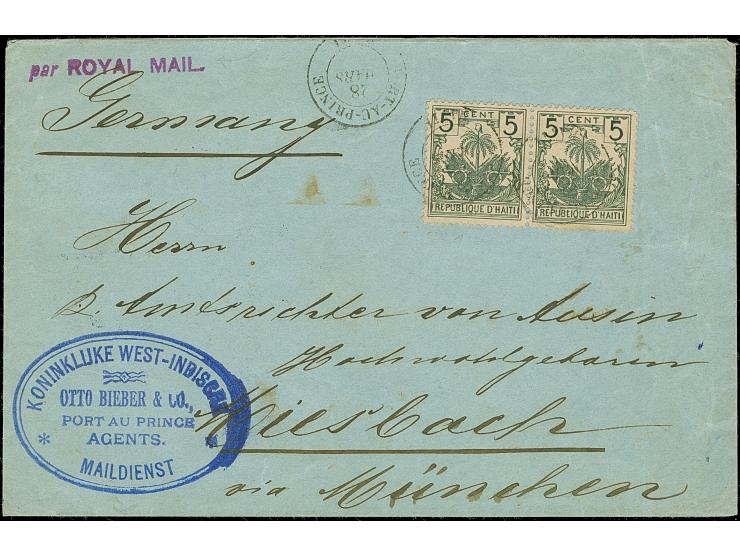 par ROYAL MAIL.
PORT-AU-PRINCE
MARS
Germany
5 CENT 5
REPUBLIQUE D'HAITI
5 CENT 5
REPUBLIQUE D'HAITI
Herrn
Amtsrichter von Ausin
Hochwohlgeboren
Miesbach
via München
KONINKLIJKE WEST-INDISCHE
OTTO BIEBER & CO.,
PORT AU PRINCE
AGENTS.
MAILDIENST